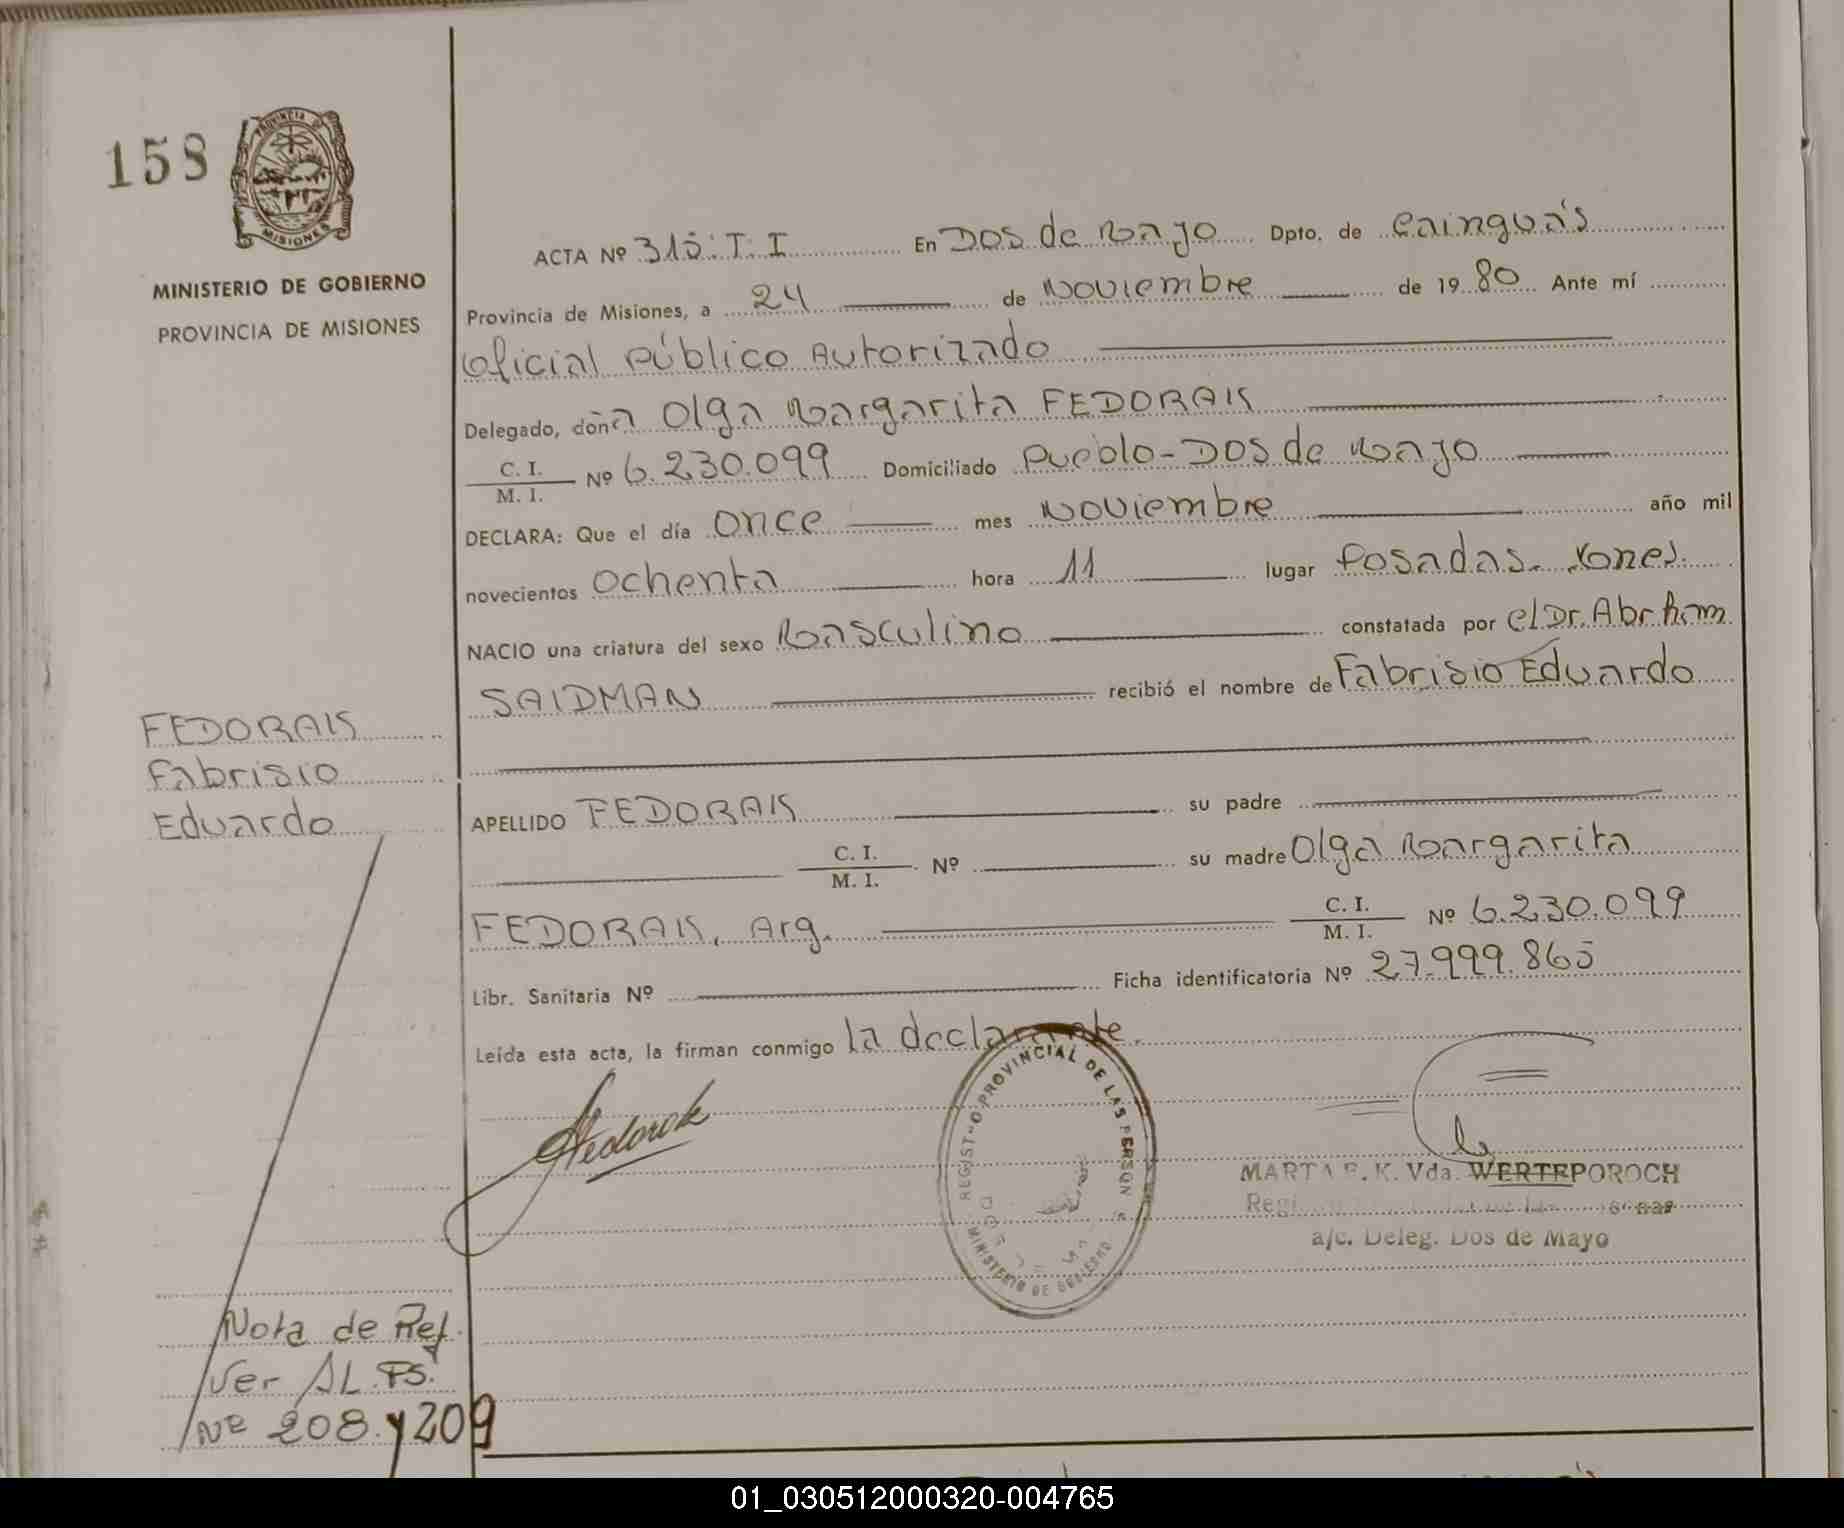 158
PROVINCIA DE
MISIONES
MINISTERIO DE GOBIERNO
PROVINCIA DE MISIONES
ACTA Nº 315. T. I En Dos de Mayo Dpto. de Cainguá's
Provincia de Misiones, a 24 de Noviembre de 1980 Ante mí
Oficial Público Autorizado
Delegado, doña Olga Margarita FEDORAK
C. I.
M. I. Nº 6.230.099 Domiciliado Pueblo-Dos de Mayo
DECLARA: Que el día once mes Noviembre año mil
novecientos ochenta hora 11 lugar Posadas. Mnes.
NACIO una criatura del sexo Masculino constatada por el Dr. Abrham
SAIDMAN recibió el nombre de Fabrisio Eduardo
FEDORAK
Fabrisio
Eduardo
APELLIDO FEDORAK su padre
C. I.
M. I. Nº su madre Olga Margarita
FEDORAK, Arg. C. I.
M. I. Nº 6.230.099
Libr. Sanitaria Nº Ficha identificatoria Nº 27.999.865
Leída esta acta, la firman conmigo la declarante.
Fedorak
REGISTRO PROVINCIAL DE LAS PERSONAS
MINISTERIO DE GOBIERNO
MARTA E. K. Vda. WERTEPOROCH
a/c. Deleg. Dos de Mayo
Nota de Ref.
Ver AL. FS.
Nº 208 y 209
01_030512000320-004765